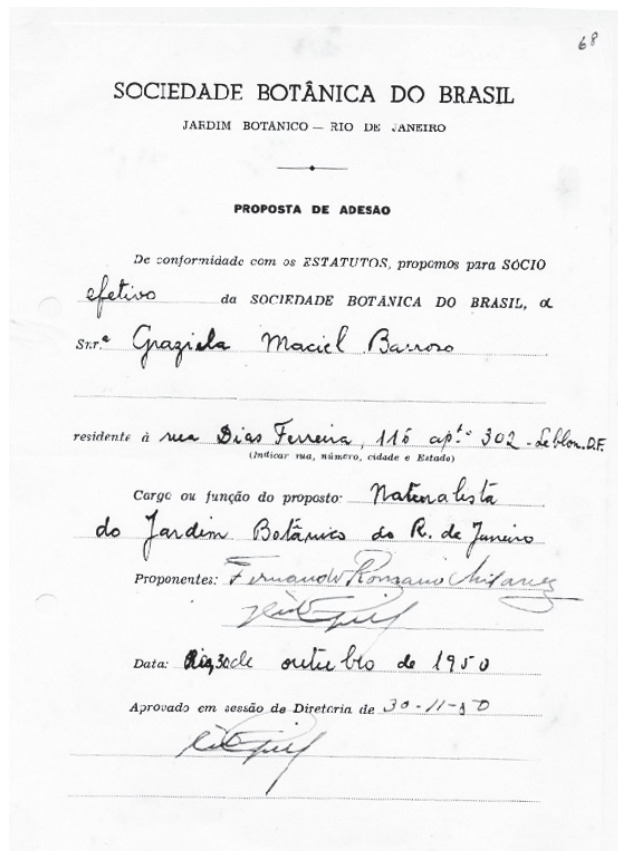 68
SOCIEDADE BOTÂNICA DO BRASIL
JARDIM BOTANICO — RIO DE JANEIRO
PROPOSTA DE ADESÃO
De conformidade com os ESTATUTOS, propomos para SÓCIO
efetivo da SOCIEDADE BOTÂNICA DO BRASIL, a
Snr.ª Graziela Maciel Barroso
residente à rua Dias Ferreira, 116 apt.º 302 - Leblon. D.F.
(Indicar rua, número, cidade e Estado)
Cargo ou função do proposto: Naturalista
do Jardim Botânico do R. de Janeiro
Proponentes: Fernando Romano Milanez
Data: Rio, 30 de outubro de 1950
Aprovado em sessão de Diretoria de 30-11-50